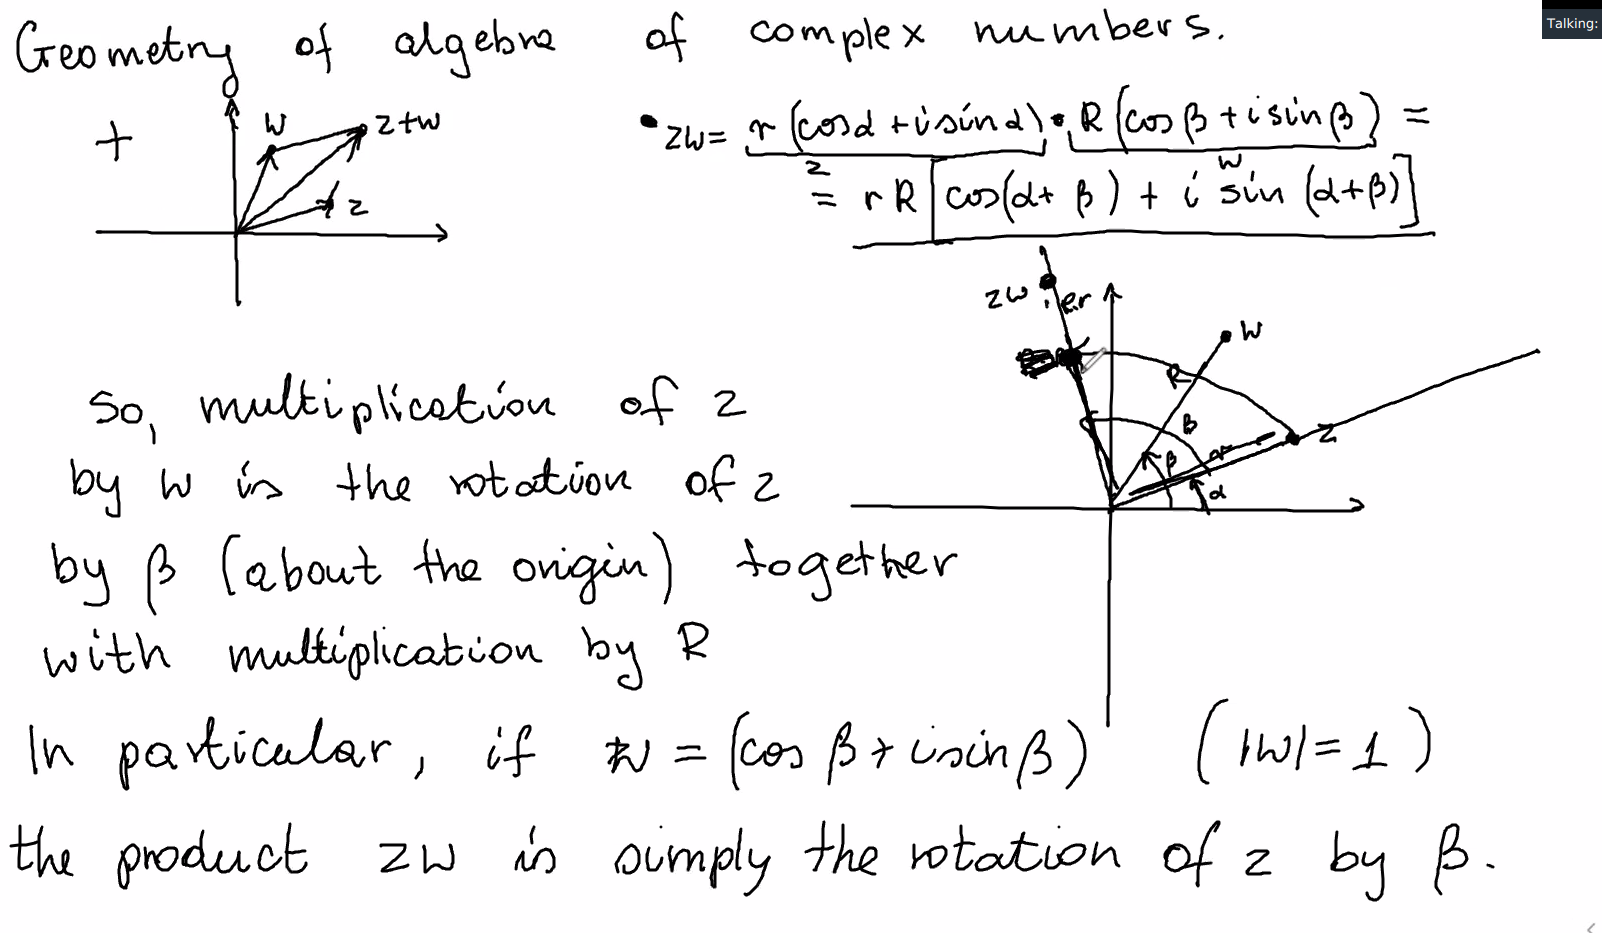 Geometry of algebra of complex numbers.
Talking:
+
w
z+w
z
• zw = r (cosα + i sinα) • R (cos β + i sin β) =
z
w
= r R [cos(α + β) + i sin (α+β)]
zw
w
R
β
z
β
r
α
So, multiplication of z
by w is the rotation of z
by β (about the origin) together
with multiplication by R
In particular, if w = (cos β + i sin β) (|w| = 1)
the product zw is simply the rotation of z by β.